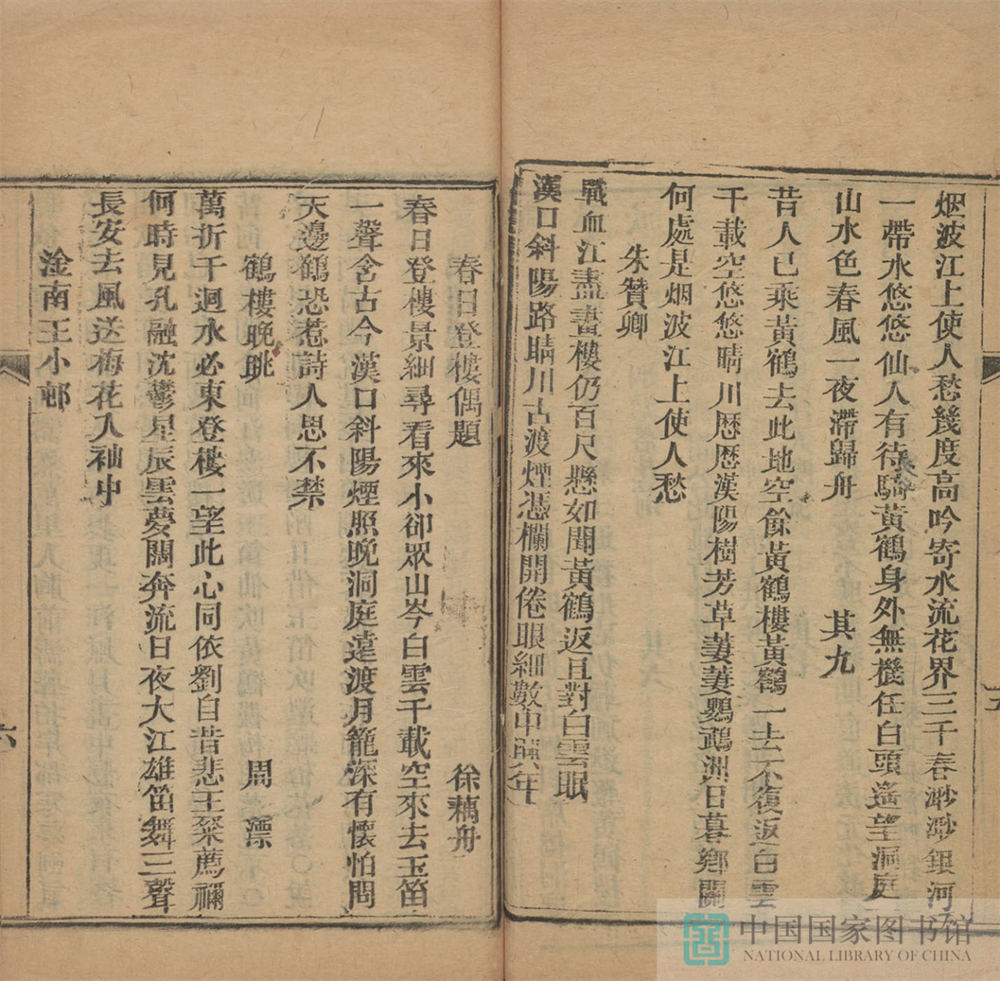 烟波江上使人愁幾度高吟寄水流花界三千春渺渺銀河
一帶水悠悠仙人有待騎黃鶴身外無機任白頭遙望洞庭
山水色春風一夜滯歸舟 其九
昔人已乘黃鶴去此地空餘黃鶴樓黃鶴一去不復返白雲
千載空悠悠晴川歷歷漢陽樹芳草萋萋鸚鵡洲日暮鄉關
何處是烟波江上使人愁
朱贊卿
戰血江盡畫樓仍百尺懸如聞黃鶴返且對白雲眠
漢口斜陽路晴川古渡煙憑欄開倦眼細數中興年
春日登樓偶題 徐藕舟
春日登樓景細尋看來小卻眾山岑白雲千載空來去玉笛
一聲含古今漢口斜陽煙照晚洞庭遠渡月籠深有懷怕問
天邊鶴恐惹詩人思不禁
鶴樓晚眺 周 漂
萬折千迴水必東登樓一望此心同依劉自昔悲王粲薦禰
何時見孔融沈鬱星辰雲夢闊奔流日夜大江雄笛舞三聲
長安去風送梅花入袖中
淦南王小邨
六
中国国家图书馆
NATIONAL LIBRARY OF CHINA